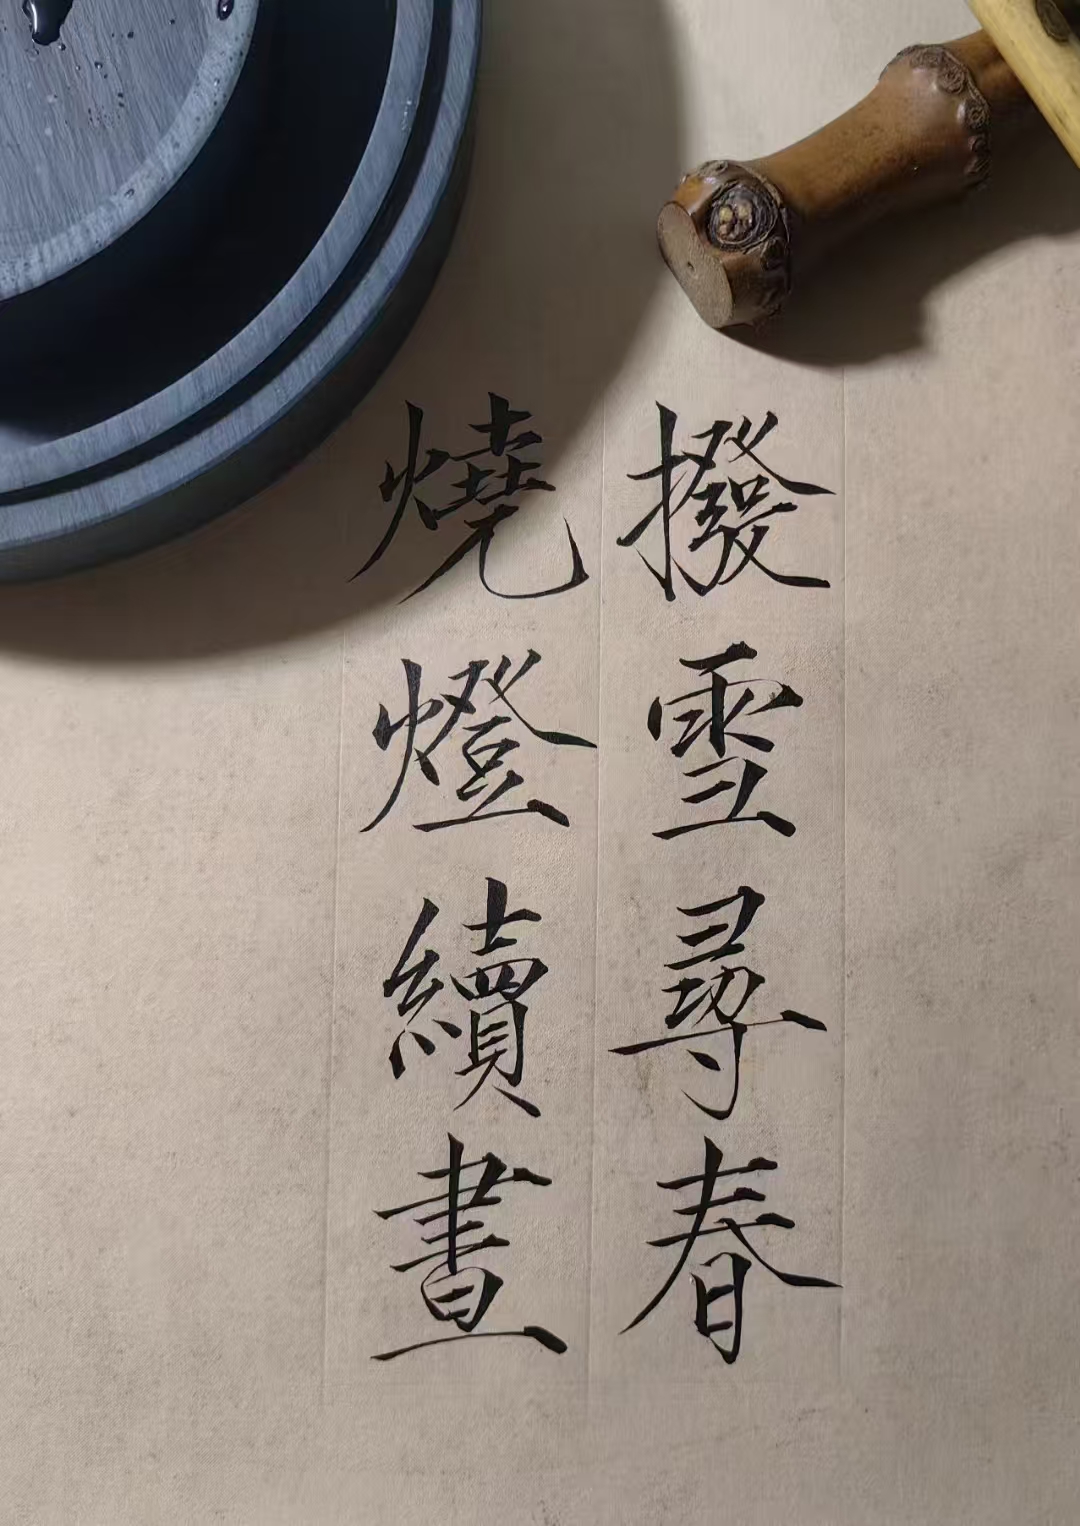 撥雪尋春
燒燈續晝